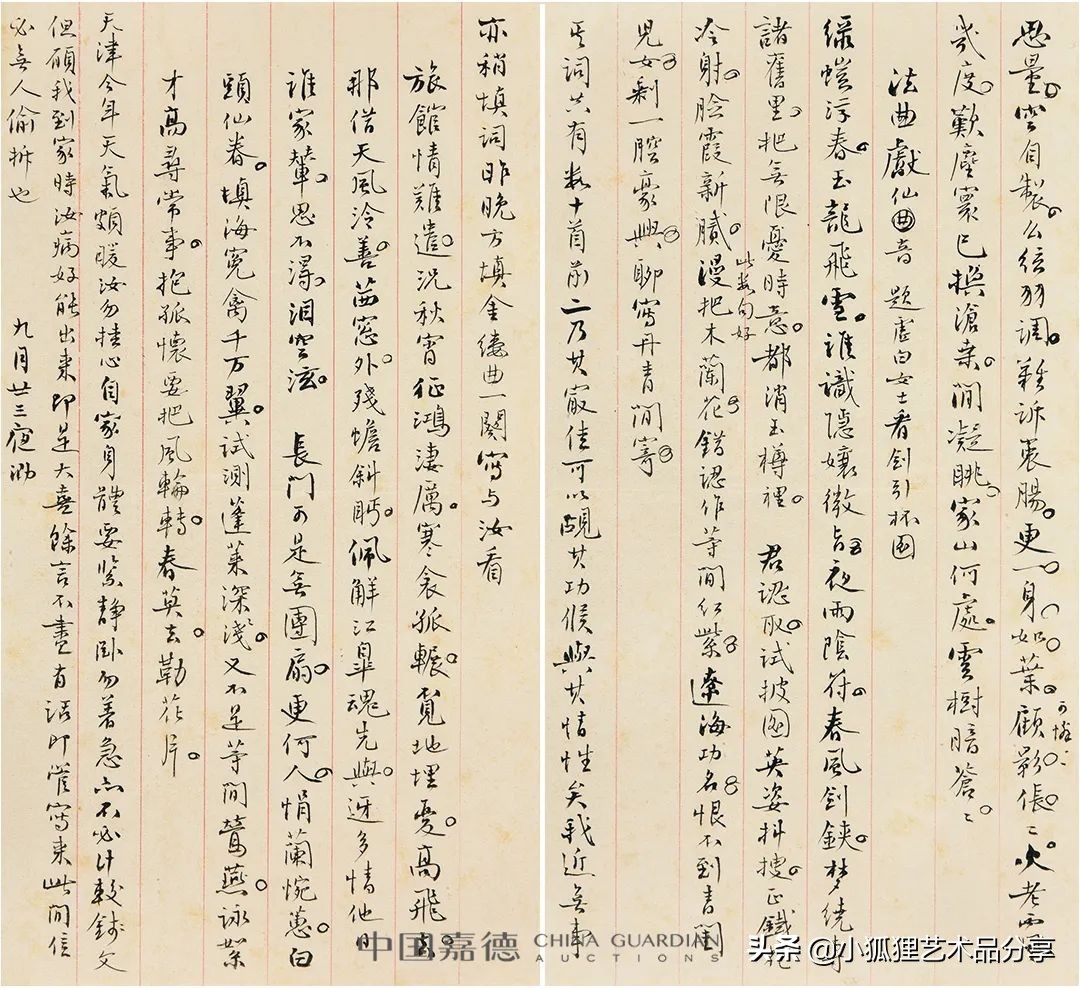 思量。空自製。幺弦羽調。難訴衷腸。更一身如葉。顧影倀〻。吹老西風
可憐
幾度。歎塵寰已換滄桒。閒凝眺。家山何處。雲樹暗蒼〻。
法曲獻仙音 題虛白女士看劍引杯圖
綠螘浮春。玉龍飛雪。誰識隱孃微旨。夜雨陰符。春風劍鋏。夢繞專
諸舊里。把無限憂時意。都消玉樽裡。 君認取。試披圖英姿抖擻。正鐵花
冷射。臉霞新膩。漫把木蘭花。錯認作等閒紅紫。遼海功名。恨不到青閨
此數句好
兒女。剩一腔豪興。聊寫丹青閒寄。
其詞共有數十首前二乃其最佳可以覘其功候與其情性矣我近無事
亦稍填詞昨晚方填金縷曲一闋寫与汝看
旅館情難遣。況秋宵征鴻淒厲。寒衾孤輾。覓地埋憂高飛去。
那借天風泠善。茜窓外。殘蟾斜眄。佩解江皋魂先與。迓多情他日
誰家輦。思不得。淚空泫。 長門可是無團扇。更何人。悁蘭惋蕙。白
頭仙眷。填海冤禽千万翼。試測蓬萊深淺。又不是等閒鶯燕。詠絮
才高尋常事。抱孤懷要把風輪轉。春莫去。勒花片。
天津今年天氣頗暖汝勿掛心自家身體要緊靜卧勿著急亦不必計較錢文
但願我到家時汝病好能出來即是大喜餘言不盡有話即管寫來此間信
必無人偷拆也 九月廿三夜泐
中国嘉德 CHINA GUARDIAN AUCTIONS
头条 @小狐狸艺术品分享